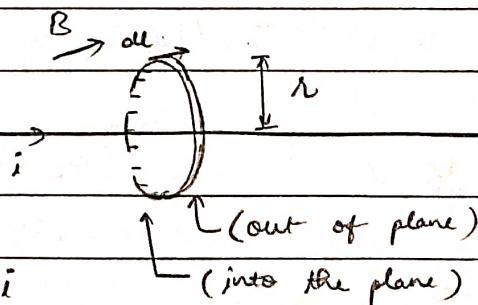 B dl
r
i
(out of plane)
(into the plane)
i